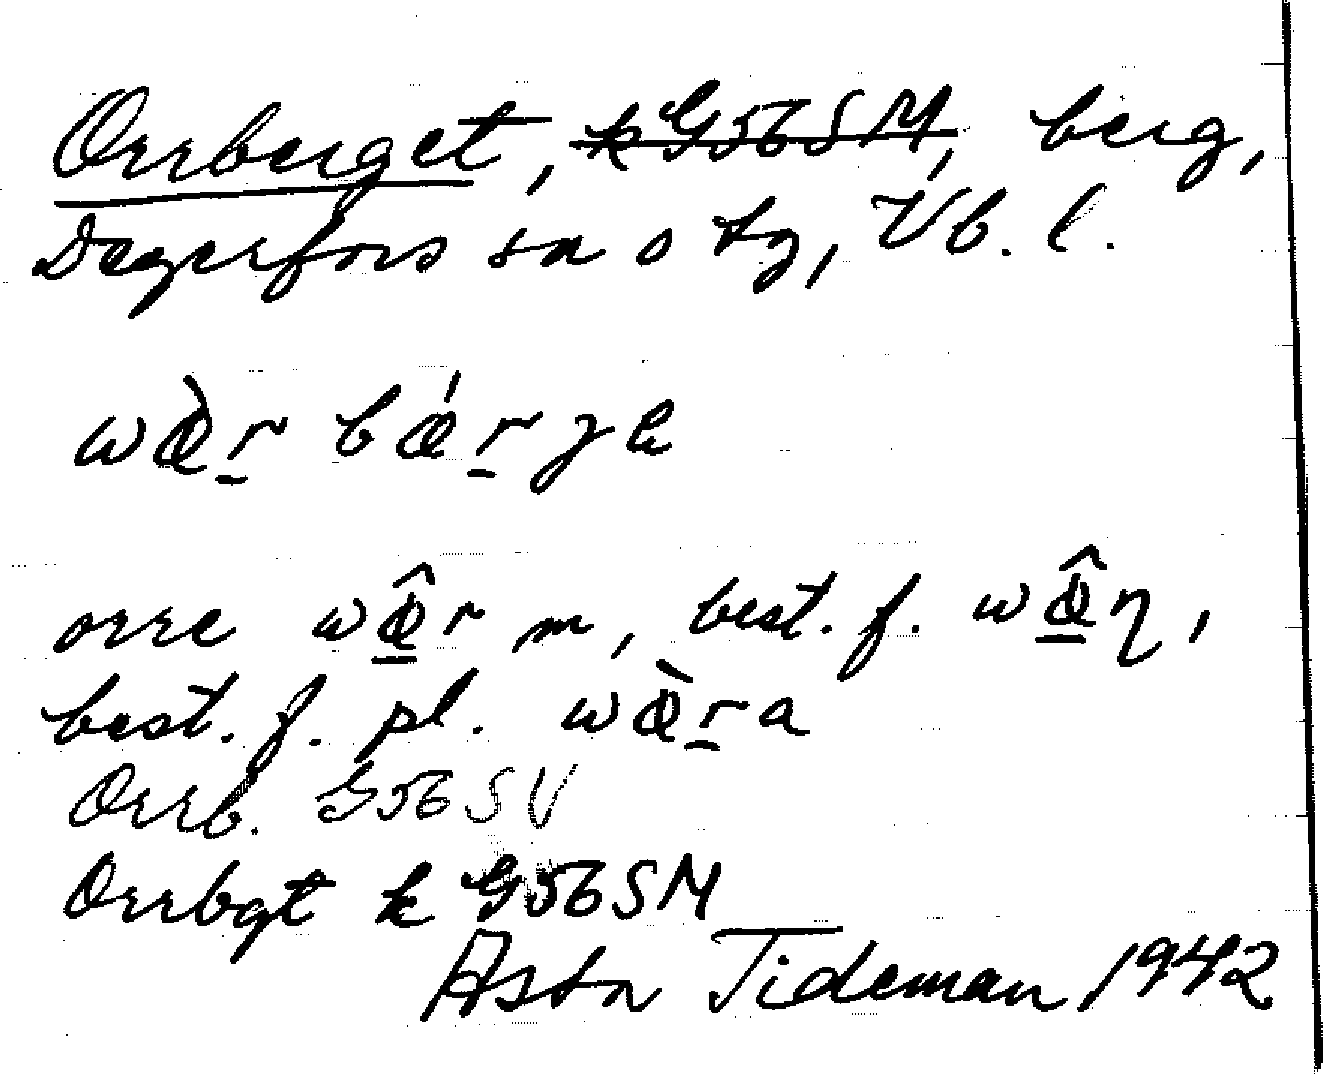 Orrberget, k G56SM, berg,
Degerfors sn o tg, Vb. l.
wœ̀r̲ bœ́r̲ge
orre wœ̲̂r m, best. f. wœ̲̂η,
best. f. pl. wœ̀r̲a
Orrb. G56SV
Orrbgt k G56SM
Asta Tideman 1942